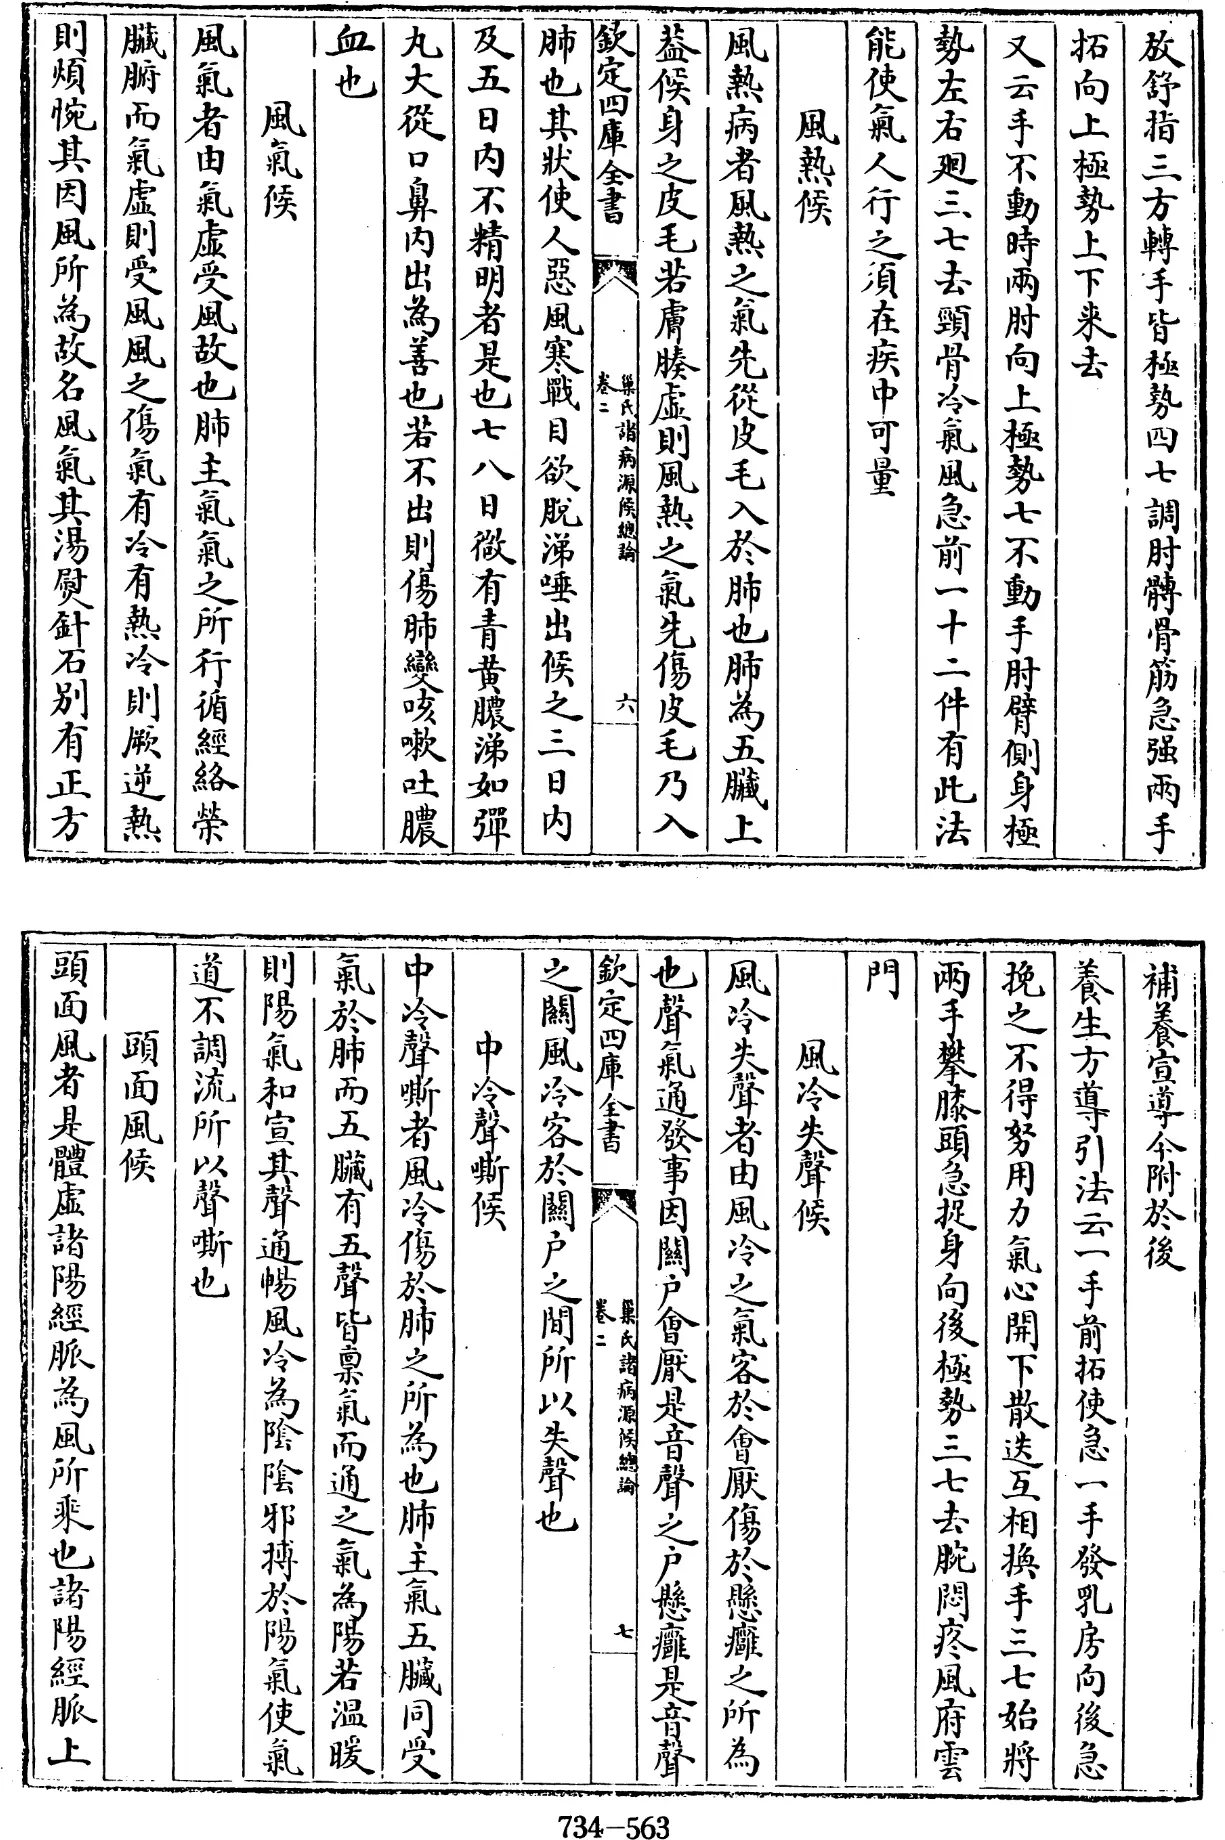 放舒指三方轉手皆極勢四七調肘髆骨筋急强兩手
拓向上極勢上下来去
又云手不動時兩肘向上極勢七不動手肘臂側身極
勢左右廻三七去頸骨冷氣風急前一十二件有此法
能使氣人行之須在疾中可量
風熱候
風熱病者風熱之氣先從皮毛入於肺也肺為五臟上
葢候身之皮毛若膚腠虛則風熱之氣先傷皮毛乃入
欽定四庫全書
巢氏諸病源候總論
卷二
六
肺也其狀使人惡風寒戰目欲脫涕唾出候之三日内
及五日内不精明者是也七八日微有青黄膿涕如彈
丸大從口鼻内出為善也若不出則傷肺變咳嗽吐膿
血也
風氣候
風氣者由氣虛受風故也肺主氣氣之所行循經絡榮
臟腑而氣虛則受風風之傷氣有冷有熱冷則厥逆熱
則煩惋其因風所為故名風氣其湯熨針石别有正方
補養宣導今附於後
養生方導引法云一手前拓使急一手發乳房向後急
挽之不得努用力氣心開下散迭互相換手三七始將
兩手攀膝頭急捉身向後極勢三七去腕悶疼風府雲
門
風冷失聲候
風冷失聲者由風冷之氣客於會厭傷於懸癰之所為
也聲氣通發事因關户會厭是音聲之户懸癰是音聲
欽定四庫全書
巢氏諸病源候總論
卷二
七
之關風冷客於關户之間所以失聲也
中冷聲嘶候
中冷聲嘶者風冷傷於肺之所為也肺主氣五臟同受
氣於肺而五臟有五聲皆禀氣而通之氣為陽若溫暖
則陽氣和宣其聲通暢風冷為陰陰邪搏於陽氣使氣
道不調流所以聲嘶也
頭面風候
頭面風者是體虛諸陽經脈為風所乘也諸陽經脈上
734-563